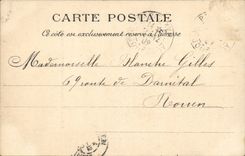 CARTE POSTALE
Ce côté est exclusivement réservé à l'adresse
Mademoiselle Blanche Gilles
69 route de Darnétal
Rouen